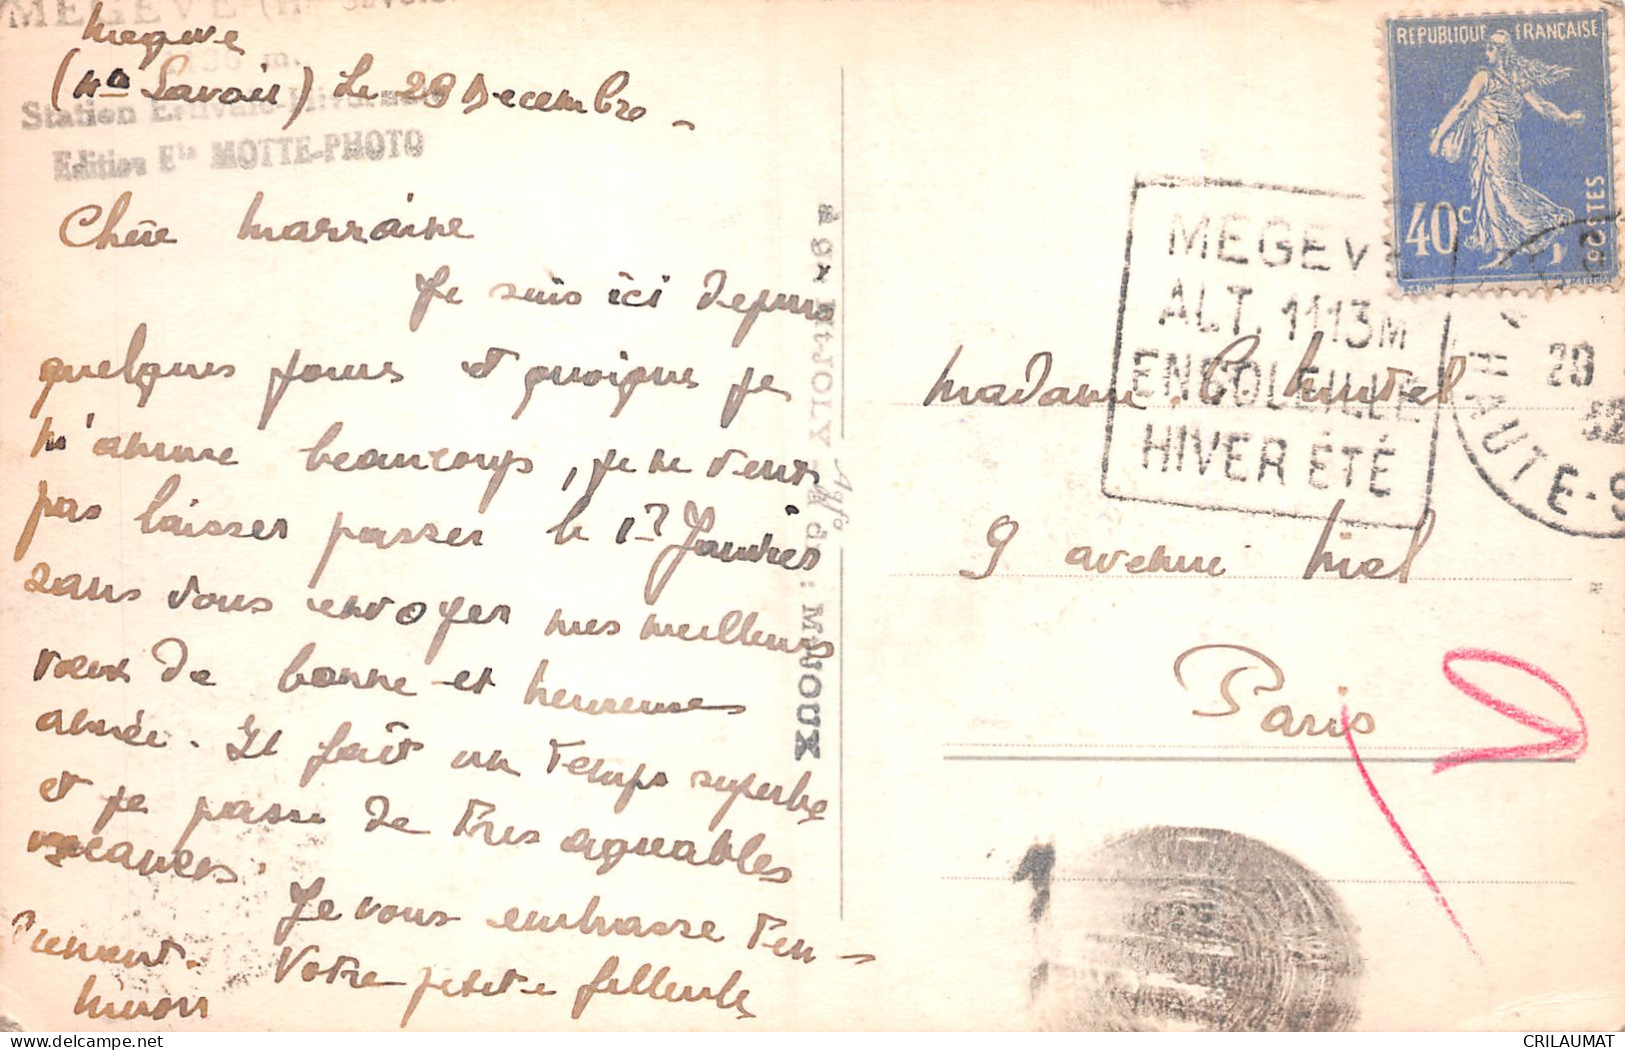 MEGÈVE (Hte Savoie)
m.
Station Estivale Hivernale
Edition Ets MOTTE-PHOTO
Megève
(Hte Savoie) Le 28 Decembre
Chère Marraine
Je suis ici depuis
quelques jours et quoique je
m'amuse beaucoup, je ne veux
pas laisser passer le 1er Janvier
sans vous envoyer mes meilleurs
vœux de bonne et heureuse
année. Il fait un temps superbe
et je passe de très agréables
vacances.
Je vous embrasse ten-
drement.
Votre petite filleule
Agfa
JOLY
RÉPUBLIQUE FRANÇAISE
40c
POSTES
MEGEVE
ALT. 1113M
ENSOLEILLE
HIVER ÉTÉ
HAUTE-S
Madame
9 avenue Niel
Paris
CRILAUMAT